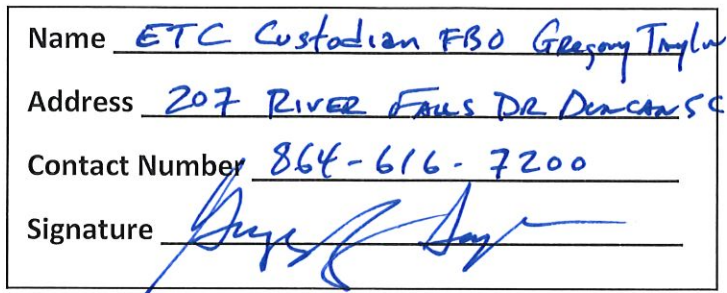 Name ETC Custodian FBO Gregory Taylor
Address 207 RIVER FALLS DR DUNCAN SC
Contact Number 864-616-7200
Signature